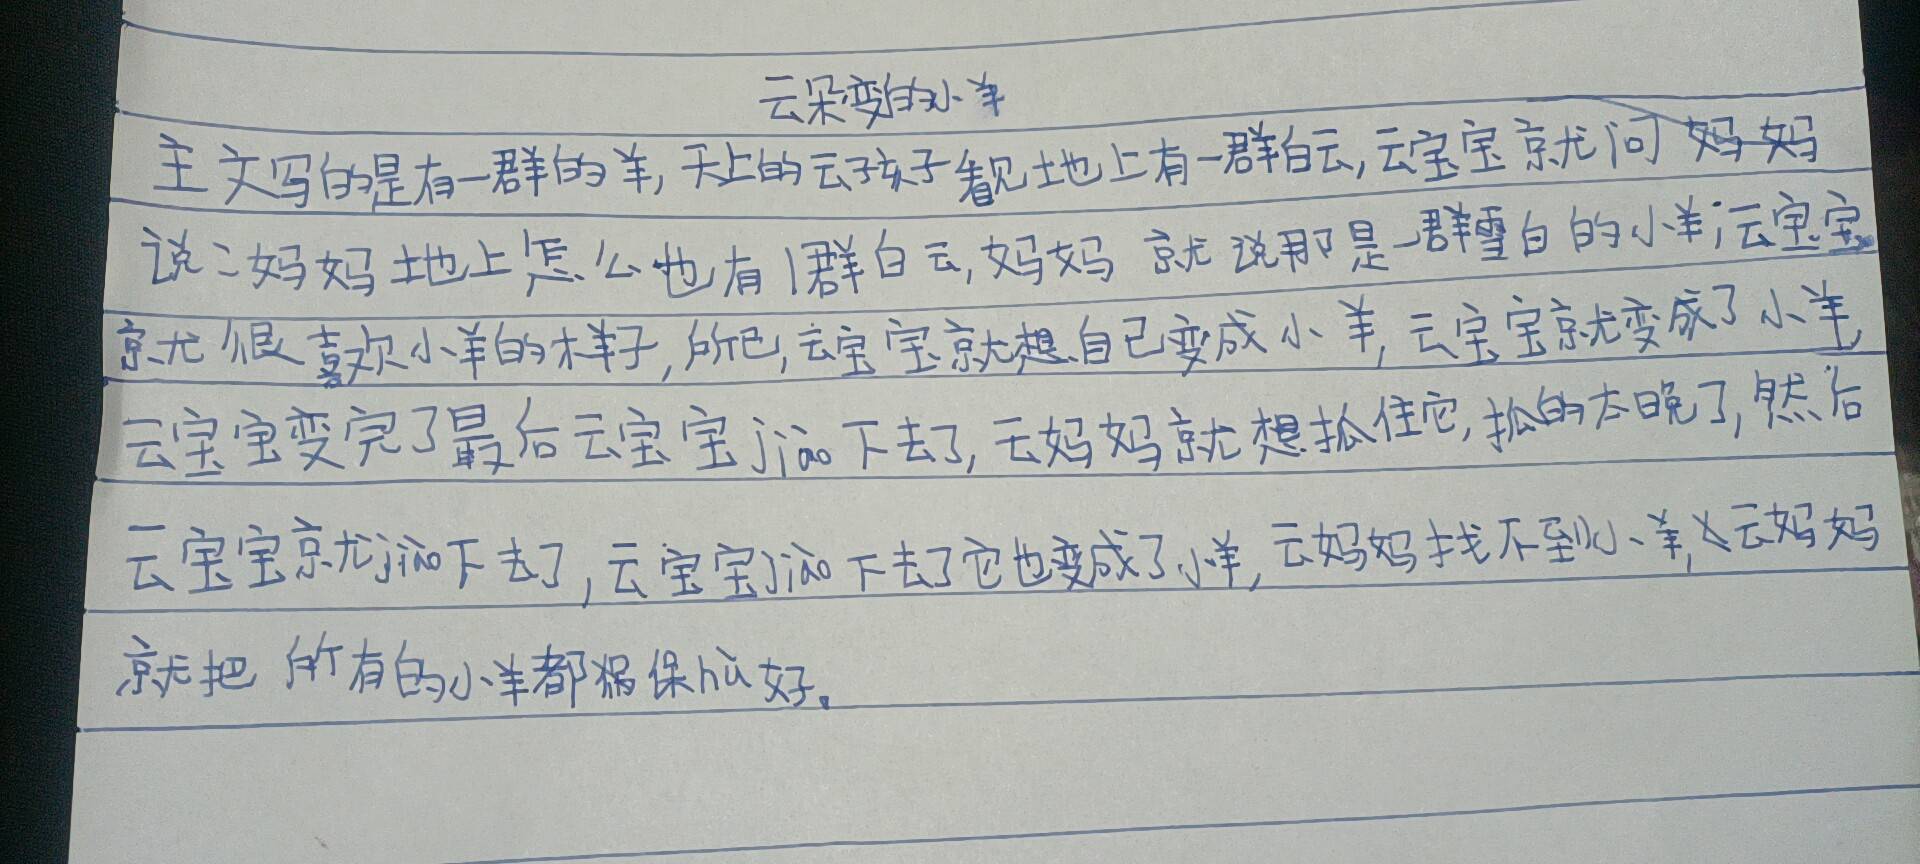 云朵变的小羊
主文写的是有一群的羊,天上的云孩子看见地上有一群白云,云宝宝就问妈妈
说:妈妈地上怎么也有1群白云,妈妈就说那是一群雪白的小羊,云宝宝
就很喜欢小羊的样子,所已,云宝宝就想自己变成小羊,云宝宝就变成了小羊,
云宝宝变完了最后云宝宝jiào下去了,云妈妈就想抓住它,抓的太晚了,然后
云宝宝就jiào下去了,云宝宝jiào下去了它也变成了小羊,云妈妈找不到小羊,云妈妈
就把所有的小羊都保hù好。